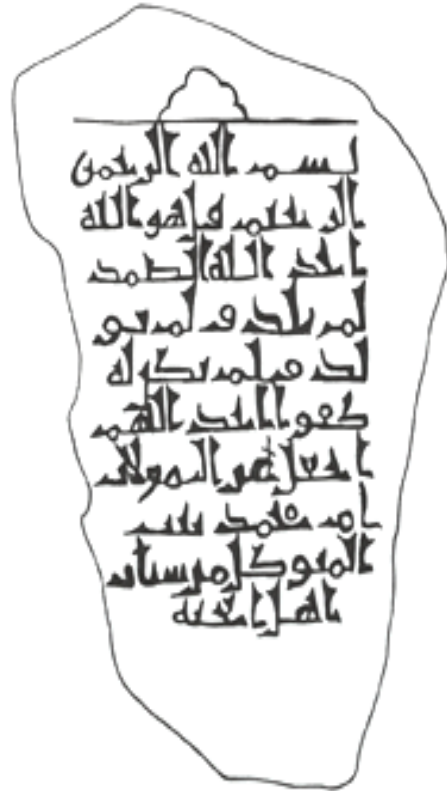 بسم الله الرحمن
الرحيم قل هو الله
احد الله الصمد
لم يلد و لم يو
لد و لم يكن له
كفوا احد اللهم
اجعل
ام محمد بنت
المتوكل من
اهل الجنه